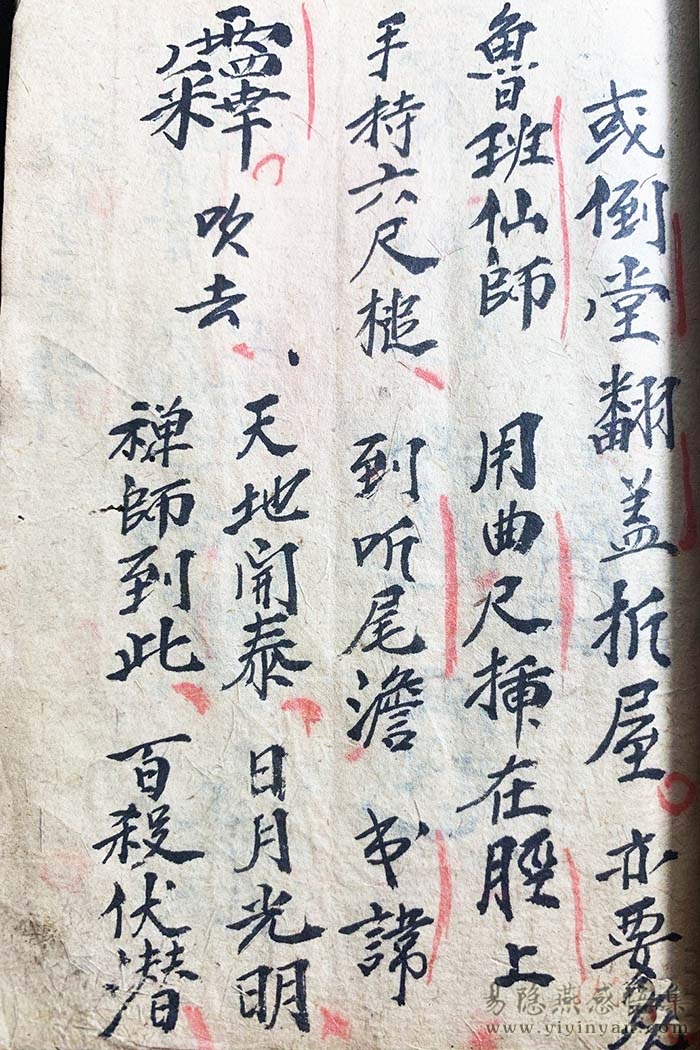 或倒堂翻盖折屋亦要
魯班仙師 用曲尺挿在脛上
手持六尺槌 到听尾澹 书諱
吹去
天地開泰 日月光明
禅師到此 百殺伏潜
易隐燕感悟集
www.yiyinyan.com